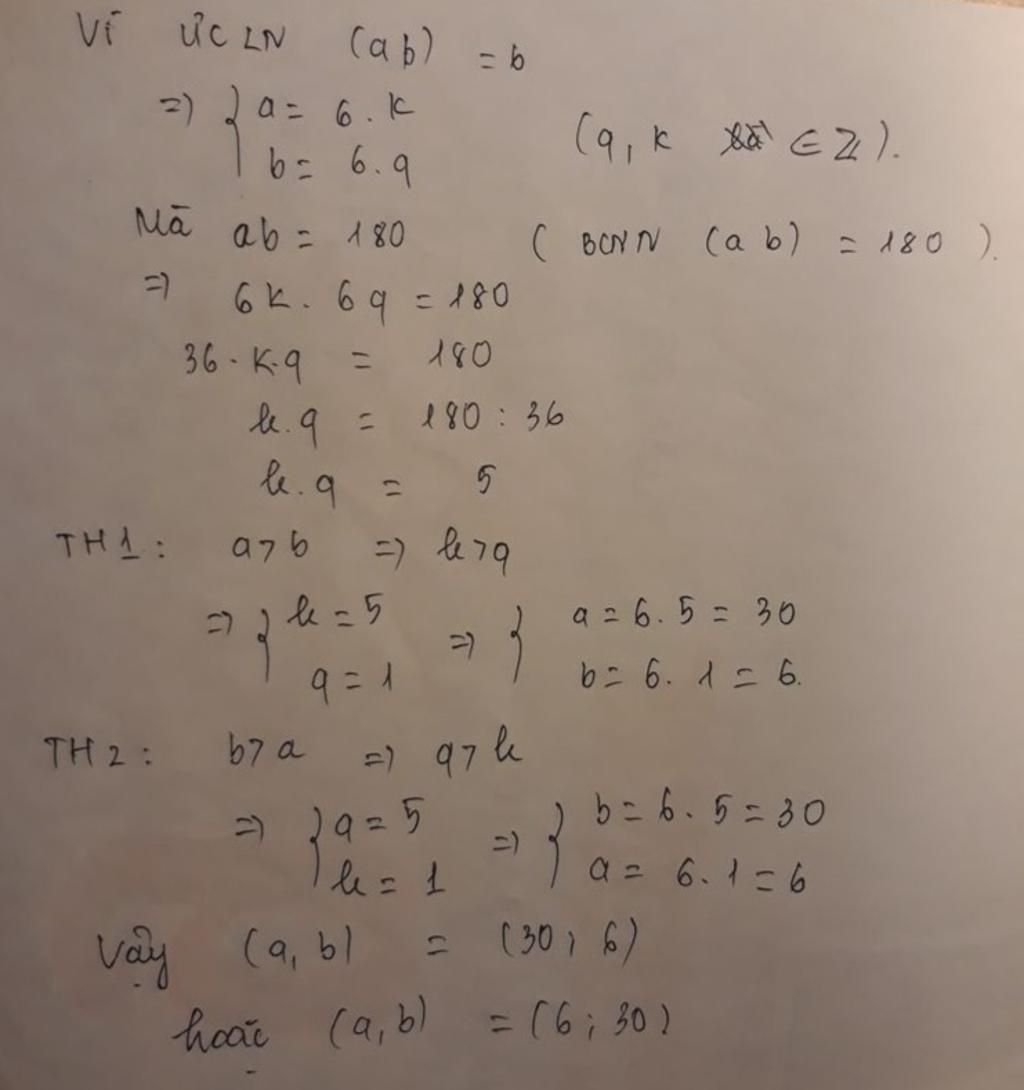 Vì ƯCLN (ab) = 6
=> { a = 6.k
b = 6.q (q, k ∈ Z).
Mà ab = 180 ( BCNN (ab) = 180 ).
=> 6k. 6q = 180
36. k.q = 180
k.q = 180 : 36
k.q = 5
TH1: a>b => k>q
=> { k = 5 => { a = 6.5 = 30
q = 1 b = 6. 1 = 6.
TH2: b>a => q>k
=> { q = 5 => { b = 6. 5 = 30
k = 1 a = 6.1 = 6
Vậy (a, b) = (30; 6)
hoặc (a, b) = (6; 30)